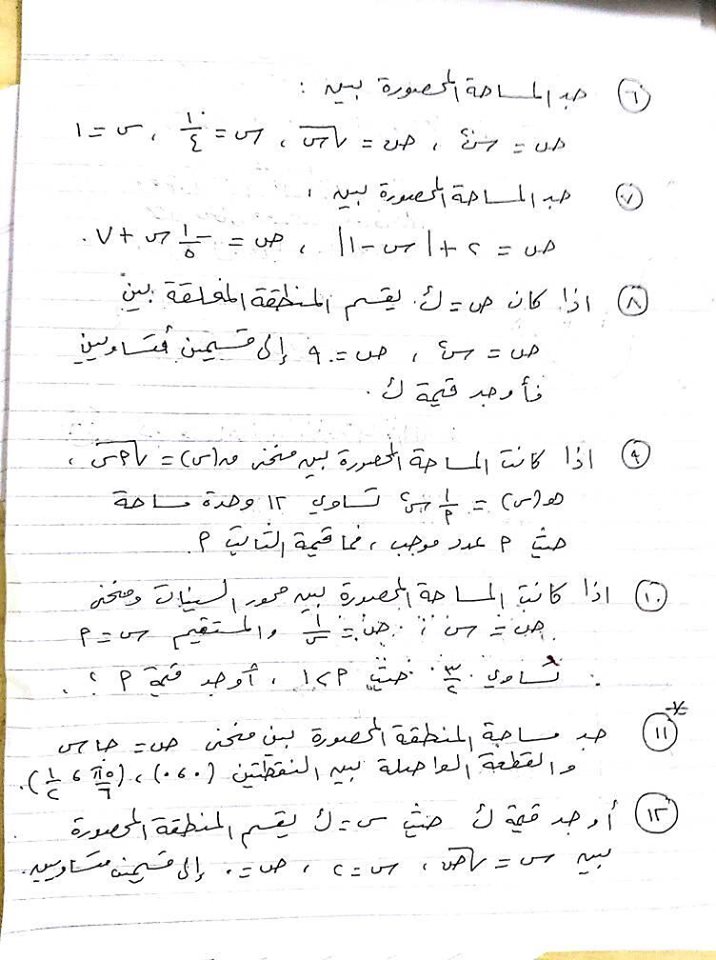 ٦) جد المساحة المحصورة بين :
ص = س² ، ص = √س ، س = ١/٤ ، س = ١
٧) جد المساحة المحصورة بين ،
ص = ٢ + |س - ١| ، ص = ١/٥ س + ٧ .
٨) اذا كان ص = ك يقسم المنطقة المغلقة بين
ص = س² ، ص = ٩ إلى قسمين متساويين
فأوجد قيمة ك .
٩) اذا كانت المساحة المحصورة بين منحنى ق(س) = √(٢س) ،
هـ(س) = ١/٢ س² تساوي ١٢ وحدة مساحة
حيث ٢ عدد موجب ، فما قيمة الثابت ٢ .
١٠) اذا كانت المساحة المحصورة بين محور السينات ومنحنى
ص = س ، ص = ١/س والمستقيم س = ٢
تساوي ٣/٢ حيث ٢ > ١ ، أوجد قيمة ٢ ؟ .
١١) جد مساحة المنطقة المحصورة بين منحنى ص = جاس
والقطعة الواصلة بين النقطتين (٠،٠) ، (٥π/٦ ، ١/٢) .
١٢) أوجد قيمة ك حيث س = ك يقسم المنطقة المحصورة
بين س = √ص ، س = ٢ ، ص = ٠ إلى قسمين متساويين .